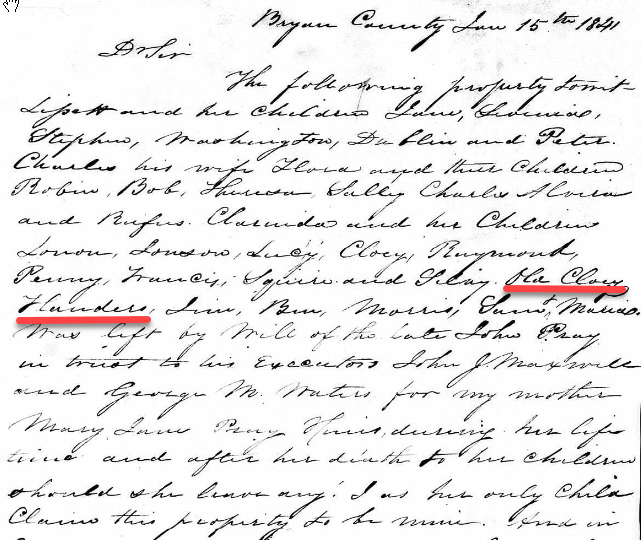 Bryan County Jan 15th 1841
Dr Sir
The following property towit
and her Children Jane, Lovinia,
Stephen, Washington, Dublin and Peter.
Charles his wife Flora and their Children
Robin, Bob, Theresa, Sally Charles Alvira
and Rufus. Clarinda and her Children
London, Lucy, Cloey, Raymond,
Penny, Francis, Squire and Old Cloey
Flanders, Jim, Ben, Morris, Sam, Maria.
Was left by Will of the late John Pray
in trust to his Executors John J Maxwell
and George M. Waters for my mother
Mary Jane Pray Hines, during her life
time and after her death to her children
should she leave any. I as her only Child
Claim this property to be mine. And in